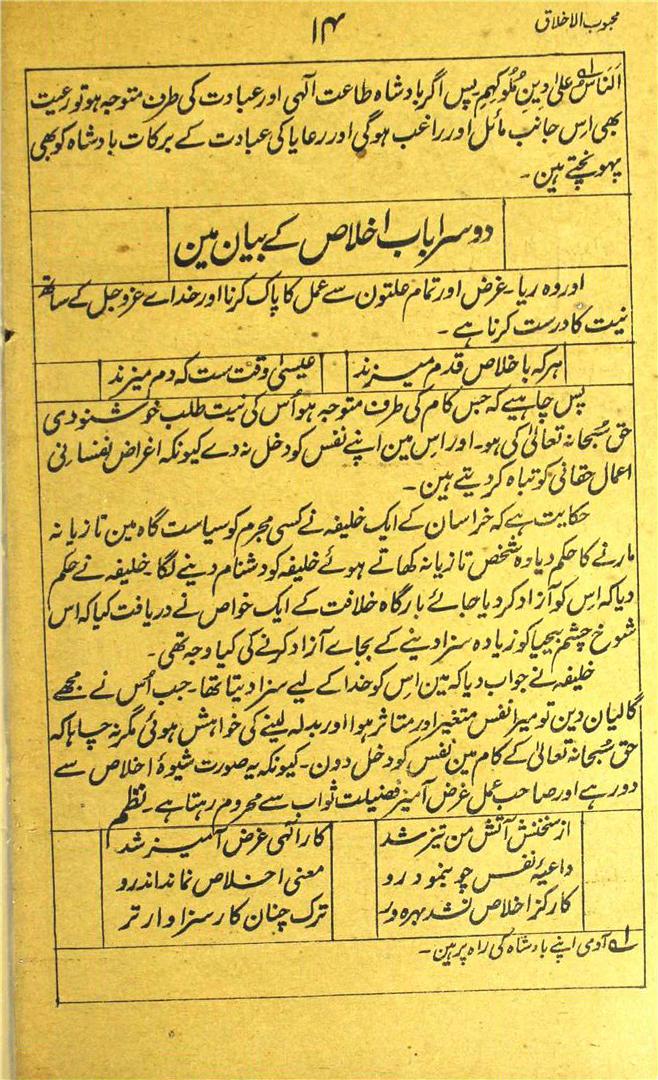 محبوب الاخلاق
۱۴
اَلنَّاسُ عَلیٰ دِینِ مُلُوکِہِم پس اگر بادشاہ طاعت آلہی اور عبادت کی طرف متوجہ ہو تو رعیت
بھی اس جانب مائل اور راغب ہوگی اور رعایا کی عبادت کے برکات بادشاہ کو بھی
پہونچتے ہین ۔
دوسرا باب اخلاص کے بیان مین
اور وہ ریا ۔ غرض اور تمام علتون سے عمل کا پاک کرنا اور خداے عزوجل کے ساتھ
نیت کا درست کرنا ہے ۔
ہر کہ باخلاص قدم میزند عیسیٰ وقت ست کہ دم میزند
پس چاہیے کہ جس کام کی طرف متوجہ ہو اُس کی نیت طلب خوشنودی
حق سُبحانہ تعالیٰ کی ہو ۔ اور اس مین اپنے نفس کو دخل نہ دے کیونکہ اغراض نفسانی
اعمال حقانی کو تباہ کر دیتے ہین ۔
حکایت ہے کہ خراسان کے ایک خلیفہ نے کسی مجرم کو سیاست گاہ مین تازیانہ
مارنے کا حکم دیا وہ شخص تازیانہ کھاتے ہوئے خلیفہ کو دشنام دینے لگا ۔ خلیفہ نے حکم
دیا کہ اس کو آزاد کر دیا جائے بارگاہ خلافت کے ایک خواص نے دریافت کیا کہ اس
شوخ چشم بیحیا کو زیادہ سزا دینے کے بجاے آزاد کرنے کی کیا وجہ تھی ۔
خلیفہ نے جواب دیا کہ مین اس کو خدا کے لیے سزا دیتا تھا ۔ جب اُس نے مجھے
گالیان دین تو میرا نفس متغیر اور متاثر ہوا اور بدلہ لینے کی خواہش ہوئی مگر نہ چاہا کہ
حق سُبحانہ تعالیٰ کے کام مین نفس کو دخل دون ۔ کیونکہ یہ صورت شیوۂ اخلاص سے
دور ہے اور صاحب عمل غرض آمیز فضیلت ثواب سے محروم رہتا ہے ۔ نظم
از سخنش آتش من تیز شد کار آلہی غرض آمیز شد
داعیۂ نفس چو بنمود رو معنی اخلاص نماند اندرو
کار کز اخلاص نشد بہرہ ور ترک چنان کار سزاوار تر
لہ آدمی اپنے بادشاہ کی راہ پر ہین ۔